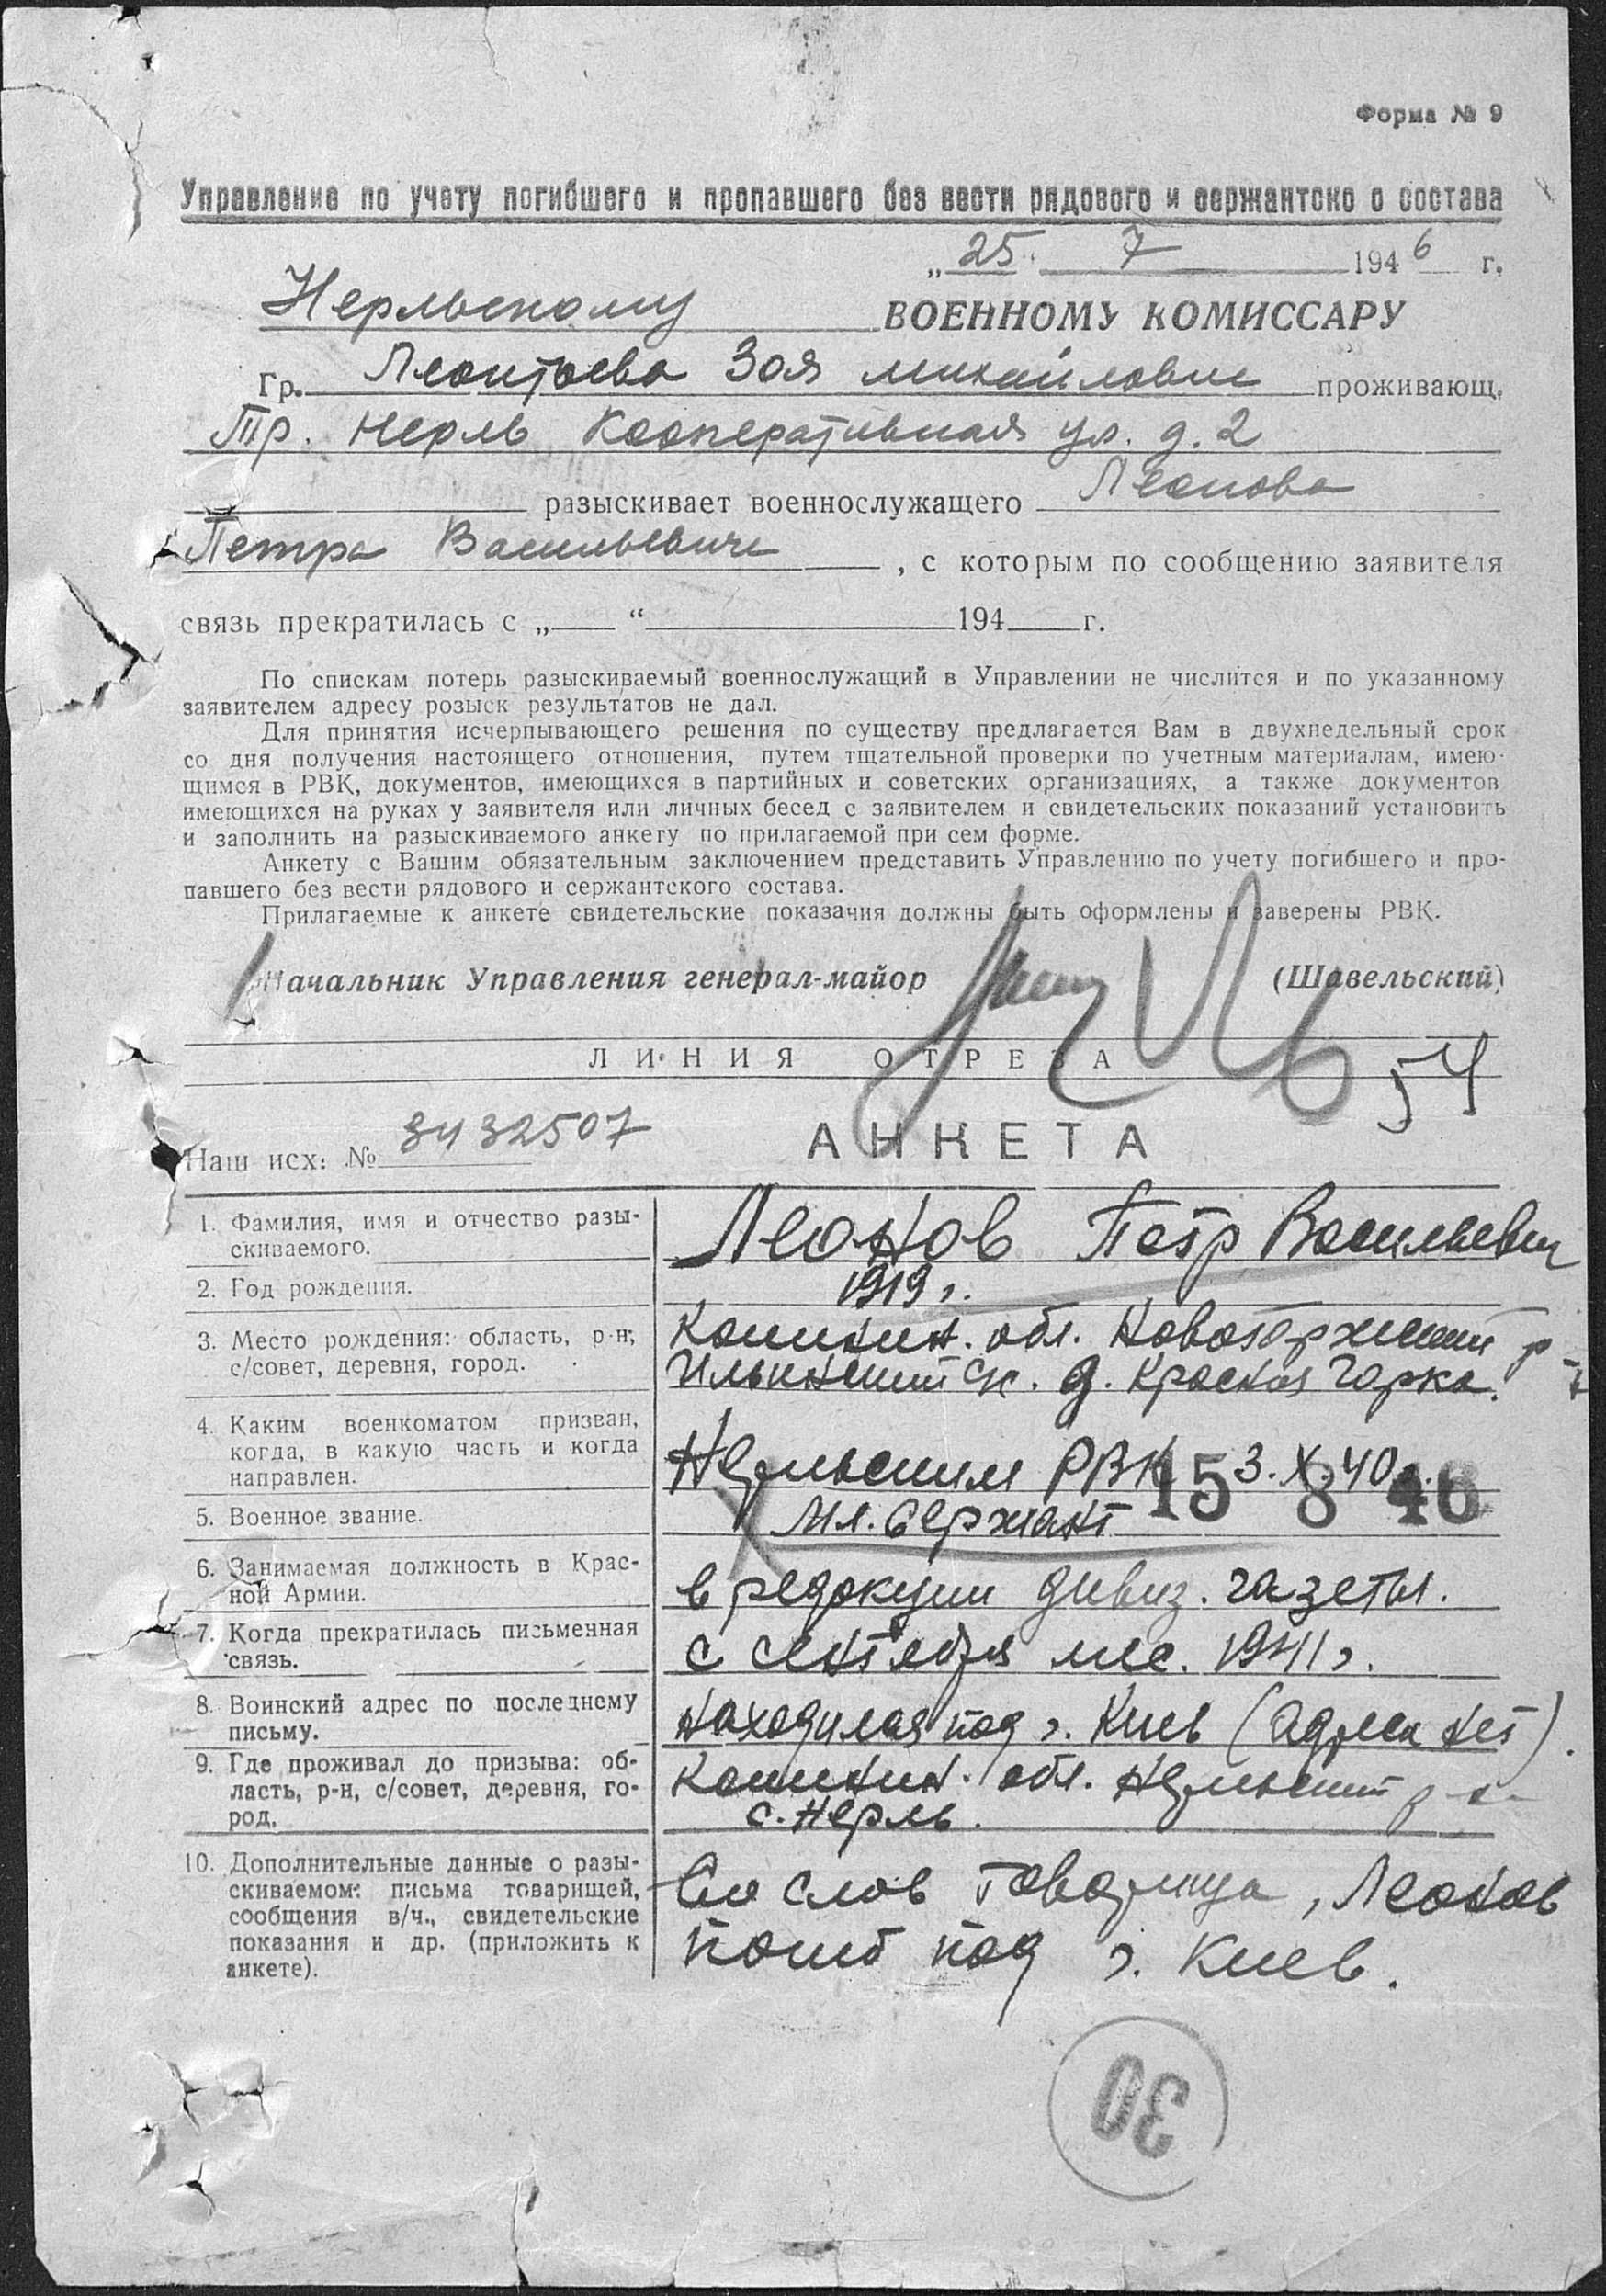 Форма № 9
Управление по учету погибшего и пропавшего без вести рядового и сержантско о состава
„25. 7 1946 г.
Нерльскому ВОЕННОМУ КОМИССАРУ
Гр. Леонтьева Зоя Михайловне проживающ.
Пр. Нерль Кооперативная ул. д. 2
разыскивает военнослужащего Леонова
Петра Васильевича, с которым по сообщению заявителя
связь прекратилась с „ “ 194 г.
По спискам потерь разыскиваемый военнослужащий в Управлении не числится и по указанному
заявителем адресу розыск результатов не дал.
Для принятия исчерпывающего решения по существу предлагается Вам в двухнедельный срок
со дня получения настоящего отношения, путем тщательной проверки по учетным материалам, имею-
щимся в РВК, документов, имеющихся в партийных и советских организациях, а также документов
имеющихся на руках у заявителя или личных бесед с заявителем и свидетельских показаний установить
и заполнить на разыскиваемого анкету по прилагаемой при сем форме.
Анкету с Вашим обязательным заключением представить Управлению по учету погибшего и про-
павшего без вести рядового и сержантского состава.
Прилагаемые к анкете свидетельские показания должны быть оформлены и заверены РВК.
Начальник Управления генерал-майор (Шавельский)
ЛИНИЯ ОТРЕЗА
54
Наш исх: № 3432507
АНКЕТА
1. Фамилия, имя и отчество разы-
скиваемого.
Леонов Петр Васильевич
2. Год рождения.
1919 г.
3. Место рождения: область, р-н,
с/совет, деревня, город.
Калинин. обл. Новоторжский р-н
Ильинский с/с. д. Красная Горка.
4. Каким военкоматом призван,
когда, в какую часть и когда
направлен.
Нерльским РВК 3.X.40 г.
15 8 46
5. Военное звание.
Мл. Сержант
6. Занимаемая должность в Крас-
ной Армии.
в редакции дивиз. газеты.
7. Когда прекратилась письменная
связь.
с сентября мес. 1941 г.
8. Воинский адрес по последнему
письму.
находился под г. Киев (адреса нет).
9. Где проживал до призыва: об-
ласть, р-н, с/совет, деревня, го-
род.
Калинин. обл. Нерльский р-н
с. Нерль.
10. Дополнительные данные о разы-
скиваемом: письма товарищей,
сообщения в/ч., свидетельские
показания и др. (приложить к
анкете).
Со слов товарища, Леонов
погиб под г. Киев.
30